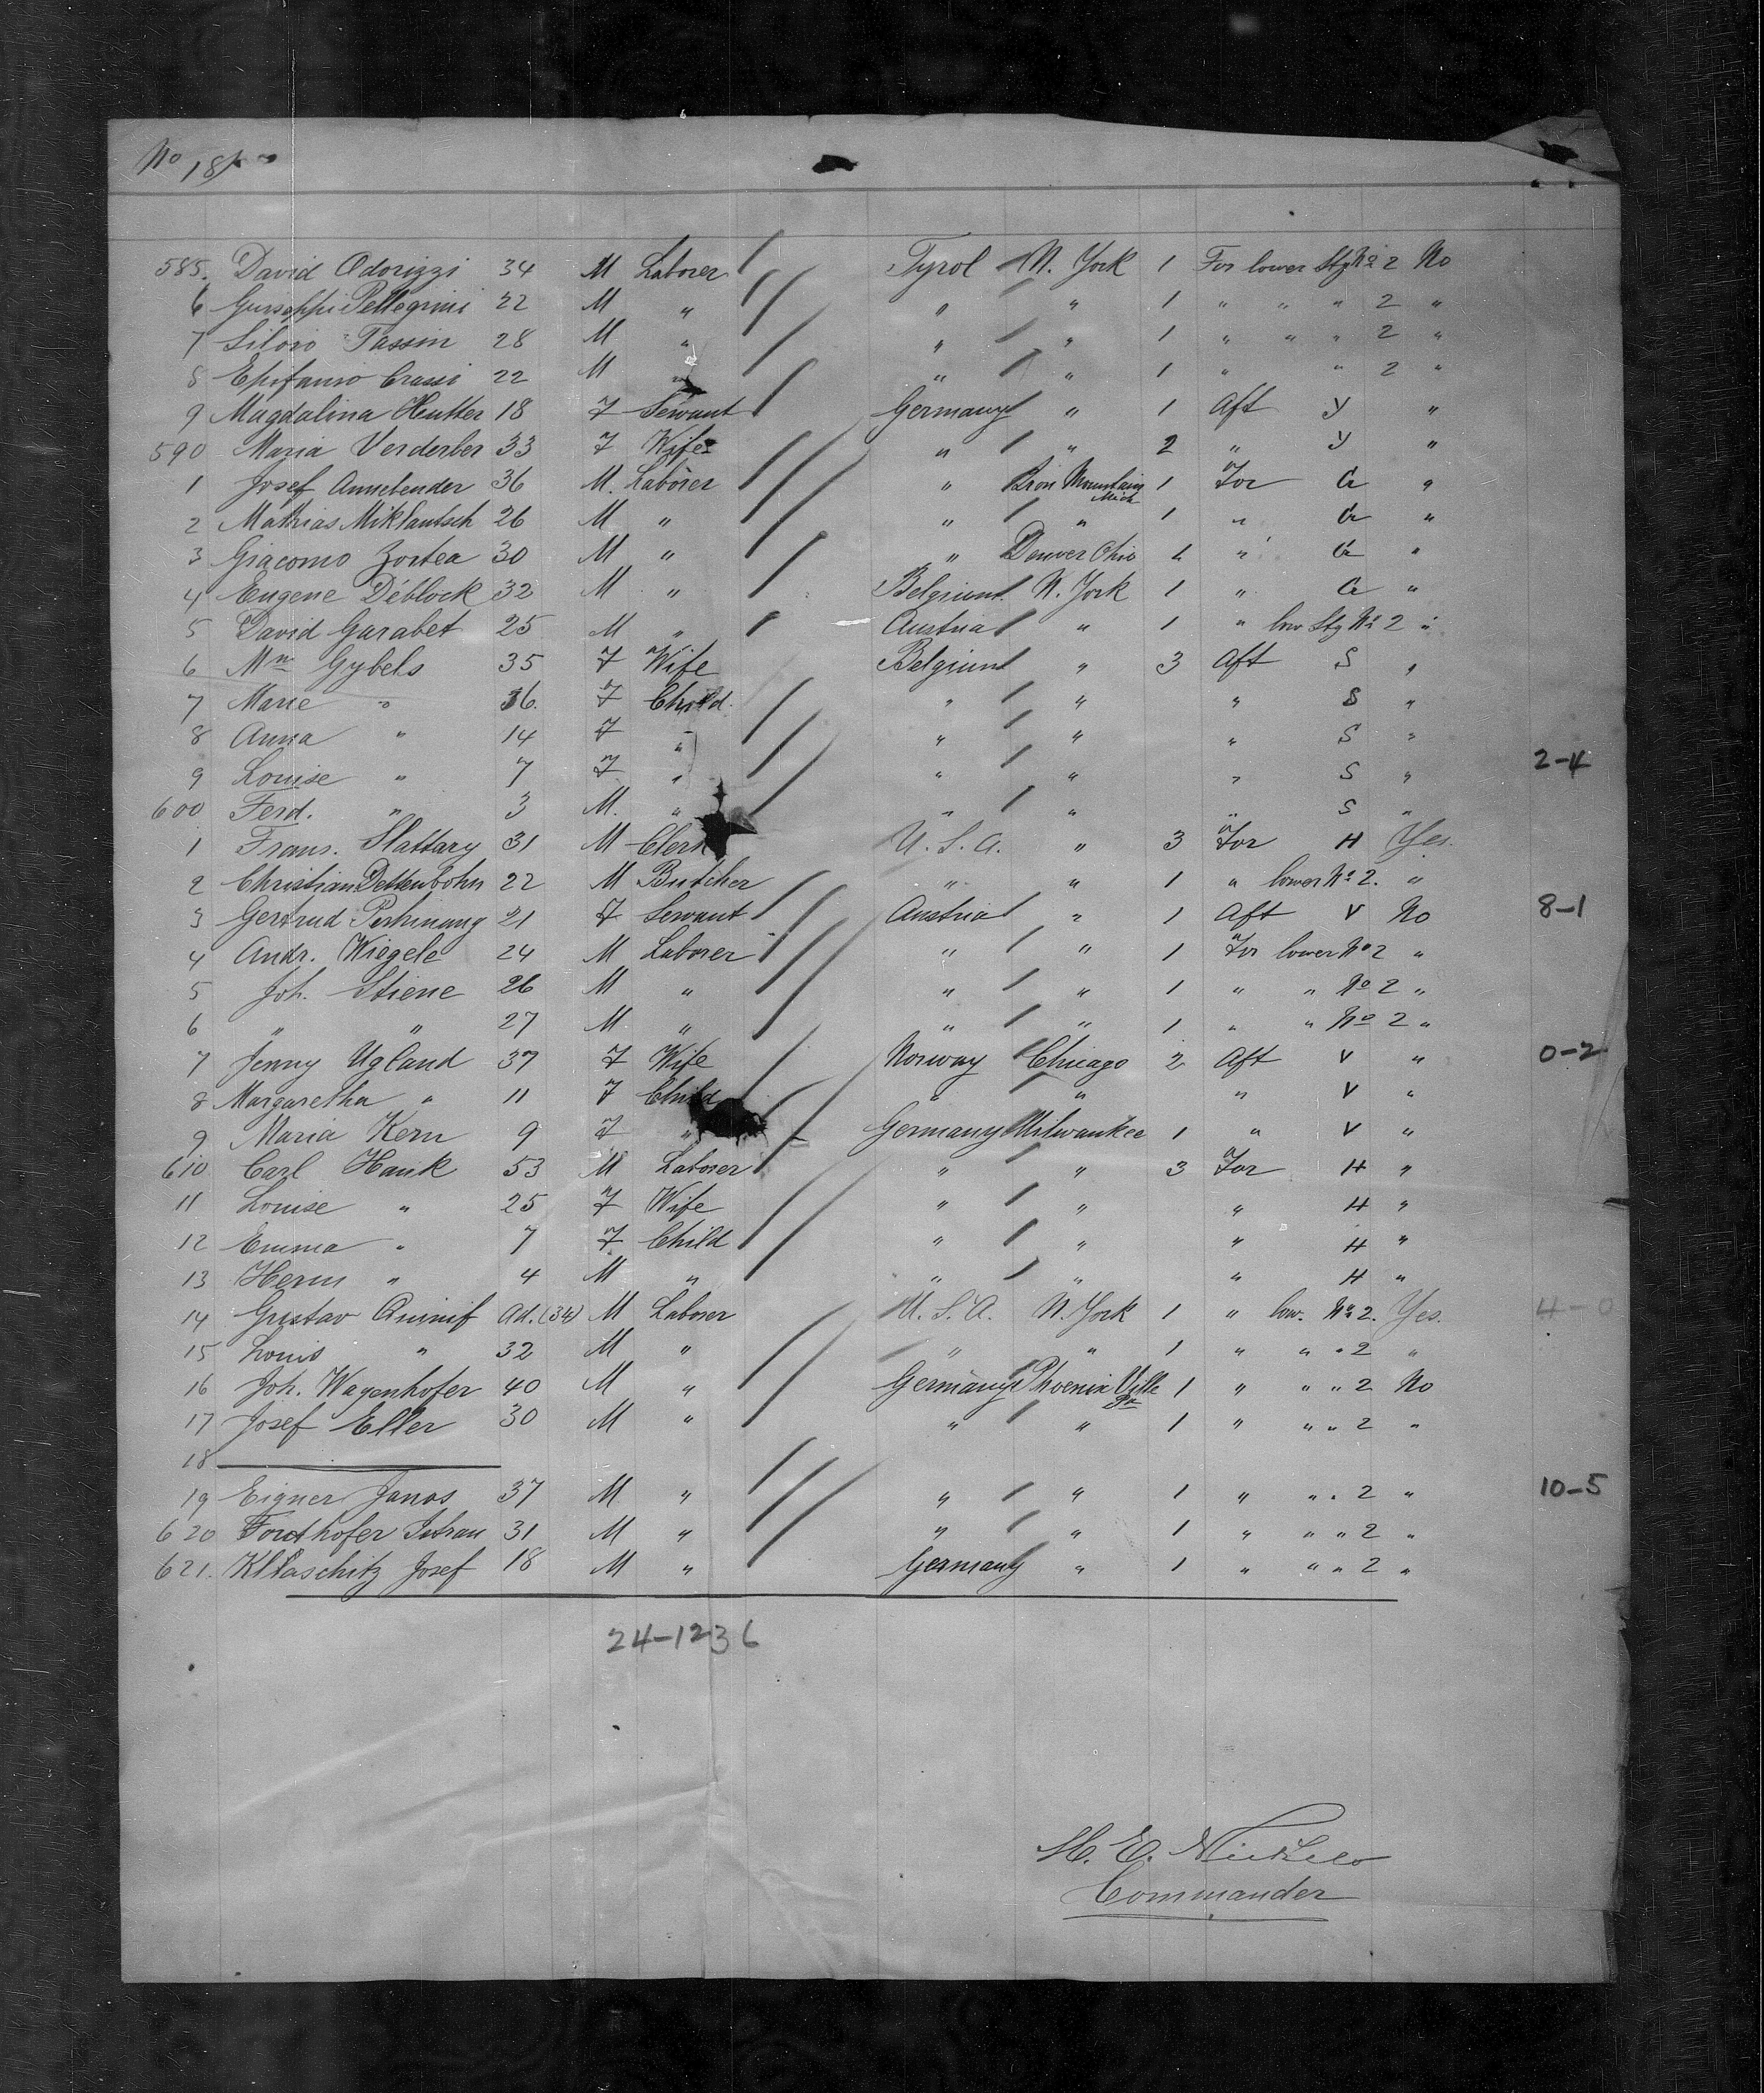 No 18
585. David Odorizzi 34 M Laborer Tyrol N. York 1 For lower Stg No 2 No
6 Guiseppi Pellegrini 22 M " " " 1 " " " 2 "
7 Silvio Tassin 28 M " " " 1 " " " 2 "
8 Epifanio Crassi 22 M " " " 1 " " 2 "
9 Magdalina Hutter 18 F Servant Germany " 1 Aft Y "
590 Maria Verderber 33 F Wife " " 2 " Y "
1 Josef 36 M. Laborer " Iron Mountain Mich 1 For G "
2 Mathias Miklautsch 26 M " " " 1 " G "
3 Giacomo Zortea 30 M " " Denver Ohio 1 " G "
4 Eugene Déblock 32 M " Belgium N. York 1 " G "
5 David Garabet 25 M " Austria " 1 " low Stg No 2 "
6 Gybels 35 F Wife Belgium " 3 Aft S "
7 Marie " 16. F Child. " " " S "
8 Anna " 14 F " " " " S "
9 Louise " 7 F " " " " S " 2-4
600 Ferd. " 3 M. " " " " S "
1 Frans. Slattary 31 M Clerk U.S.A. " 3 For H Yes.
2 Christian Dettenbohn 22 M Butcher " " 1 " lower No 2. "
3 Gertrud 21 F Servant Austria " 1 Aft V No 8-1
4 Andr. Wiegele 24 M Laborer " " 1 For lower No 2 "
5 Joh. Stiene 26 M " " " 1 " " No 2 "
6 " " 27 M " " " 1 " " No 2 "
7 Jenny Ugland 37 F Wife Norway Chicago 2 Aft V " 0-2
8 Margaretha " 11 F Child " " " V "
9 Maria Kern 9 F " Germany Milwaukee 1 " V "
610 Carl Hauk 53 M Laborer " " 3 For H "
11 Louise " 25 F Wife " " " H "
12 Emma " 7 F Child " " " H "
13 Herm " 4 M " " " " H "
14 Gustav Ad. (34) M Laborer U.S.A. N. York 1 " low. No 2. Yes. 4-0
15 Louis " 32 M " " " 1 " " " 2 "
16 Joh. Wagenhofer 40 M " Germany Phoenix Ville Pa 1 " " " 2 No
17 Josef Eller 30 M " " " 1 " " " 2 "
18
19 Eigner Janos 37 M " " " 1 " " " 2 " 10-5
620 Fordthofer 31 M " " " 1 " " " 2 "
621. Josef 18 M " Germany " 1 " " " 2 "
24-1236
H. E. Nickels
Commander